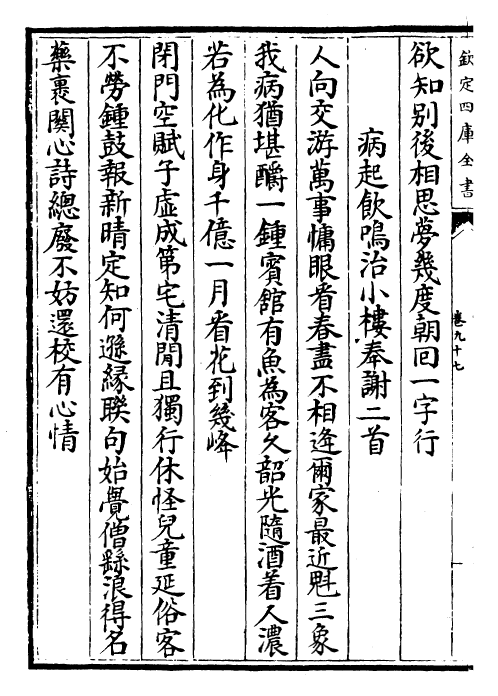 欽定四庫全書
卷九十七
欲知别後相思夢幾度朝回一字行
病起飲鳴治小樓奉謝二首
人向交游萬事慵眼看春盡不相逢爾家最近魁三象
我病猶堪釂一鍾賓舘有魚為客久韶光隨酒着人濃
若為化作身千億一月看花到幾峰
閉門空賦子虚成第宅清閒且獨行休怪兒童延俗客
不勞鍾鼓報新晴定知何遜縁聯句始覺僧繇浪得名
藥裹闗心詩總廢不妨還校有心情